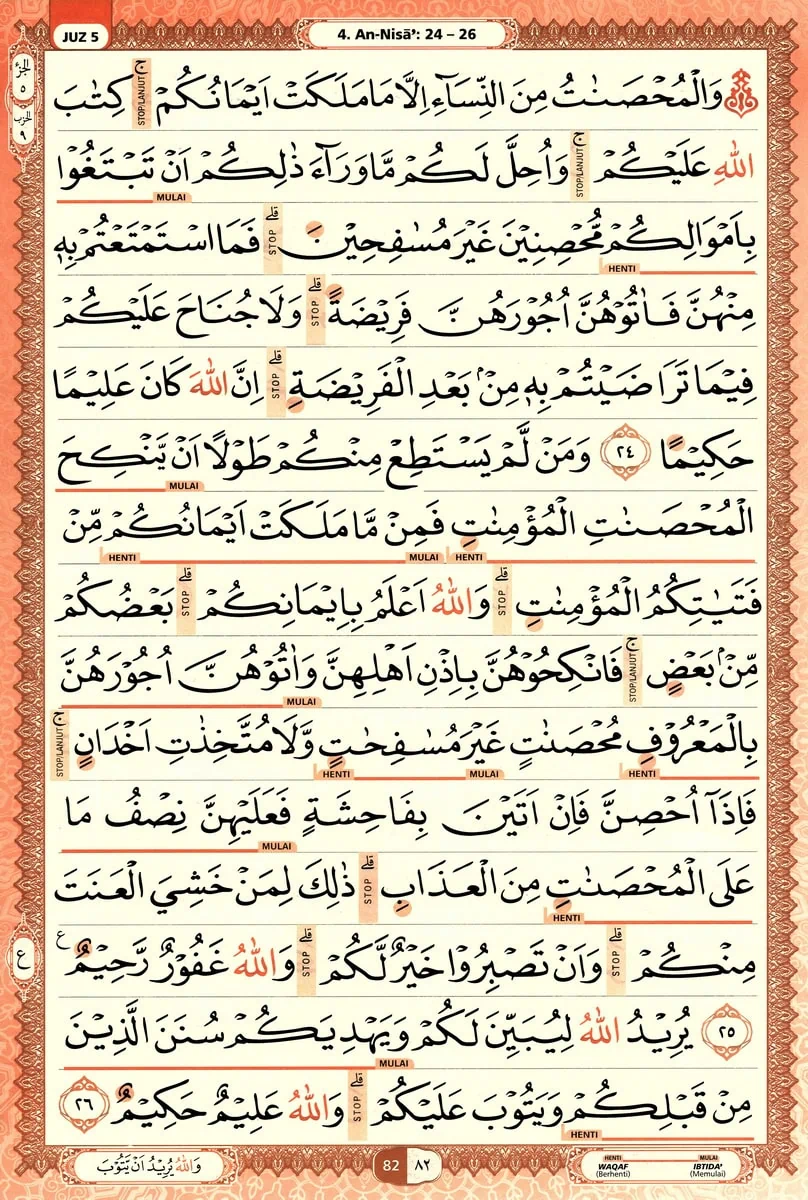 JUZ 5
4. An-Nisā': 24 – 26
الجزء ٥
الحزب ٩
وَالْمُحْصَنٰتُ مِنَ النِّسَاۤءِ اِلَّا مَا مَلَكَتْ اَيْمَانُكُمْ ۚ STOP/LANJUT كِتٰبَ
اللّٰهِ عَلَيْكُمْ ۚ STOP/LANJUT وَاُحِلَّ لَكُمْ مَّا وَرَاۤءَ ذٰلِكُمْ اَنْ تَبْتَغُوْا
MULAI
بِاَمْوَالِكُمْ مُّحْصِنِيْنَ غَيْرَ مُسٰفِحِيْنَ ۗ STOP فَمَا اسْتَمْتَعْتُمْ بِهٖ
HENTI
مِنْهُنَّ فَاٰتُوْهُنَّ اُجُوْرَهُنَّ فَرِيْضَةً ۗ STOP وَلَا جُنَاحَ عَلَيْكُمْ
فِيْمَا تَرَاضَيْتُمْ بِهٖ مِنْۢ بَعْدِ الْفَرِيْضَةِ ۗ STOP اِنَّ اللّٰهَ كَانَ عَلِيْمًا
حَكِيْمًا ٢٤ وَمَنْ لَّمْ يَسْتَطِعْ مِنْكُمْ طَوْلًا اَنْ يَّنْكِحَ
MULAI
الْمُحْصَنٰتِ الْمُؤْمِنٰتِ فَمِنْ مَّا مَلَكَتْ اَيْمَانُكُمْ مِّنْ
HENTI MULAI HENTI
فَتَيٰتِكُمُ الْمُؤْمِنٰتِ ۗ STOP وَاللّٰهُ اَعْلَمُ بِاِيْمَانِكُمْ ۗ STOP بَعْضُكُمْ
مِّنْۢ بَعْضٍ ۚ STOP/LANJUT فَانْكِحُوْهُنَّ بِاِذْنِ اَهْلِهِنَّ وَاٰتُوْهُنَّ اُجُوْرَهُنَّ
MULAI
بِالْمَعْرُوْفِ مُحْصَنٰتٍ غَيْرَ مُسٰفِحٰتٍ وَّلَا مُتَّخِذٰتِ اَخْدَانٍ ۚ STOP/LANJUT
HENTI MULAI HENTI
فَاِذَآ اُحْصِنَّ فَاِنْ اَتَيْنَ بِفَاحِشَةٍ فَعَلَيْهِنَّ نِصْفُ مَا
MULAI
عَلَى الْمُحْصَنٰتِ مِنَ الْعَذَابِ ۗ STOP ذٰلِكَ لِمَنْ خَشِيَ الْعَنَتَ
HENTI
مِنْكُمْ ۗ STOP وَاَنْ تَصْبِرُوْا خَيْرٌ لَّكُمْ ۗ STOP وَاللّٰهُ غَفُوْرٌ رَّحِيْمٌ ع
ع
٢٥ يُرِيْدُ اللّٰهُ لِيُبَيِّنَ لَكُمْ وَيَهْدِيَكُمْ سُنَنَ الَّذِيْنَ
MULAI
مِنْ قَبْلِكُمْ وَيَتُوْبَ عَلَيْكُمْ ۗ STOP وَاللّٰهُ عَلِيْمٌ حَكِيْمٌ ٢٦
HENTI
وَاللّٰهُ يُرِيْدُ اَنْ يَّتُوْبَ
82 ٨٢
HENTI MULAI
WAQAF IBTIDA'
(Berhenti) (Memulai)